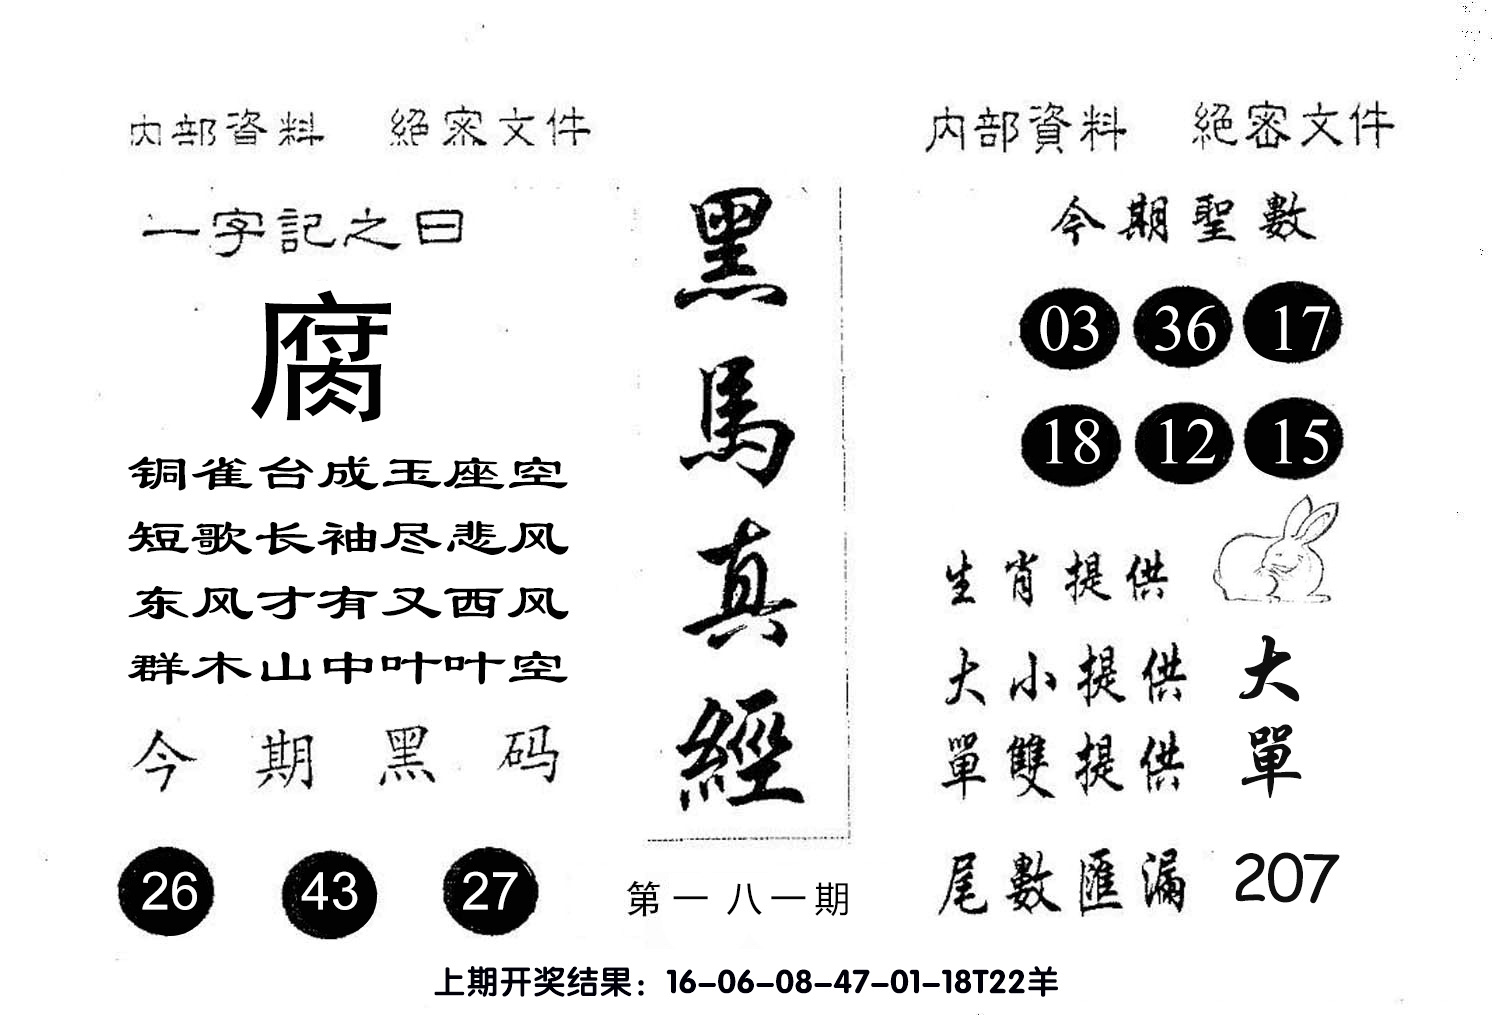 内部資料 絕密文件
一字記之曰
腐
铜雀台成玉座空
短歌长袖尽悲风
东风才有又西风
群木山中叶叶空
今期黑码
26 43 27
黑馬真經
第一八一期
内部資料 絕密文件
今期聖數
03 36 17
18 12 15
生肖提供
大小提供 大
單雙提供 單
尾數匯漏 207
上期开奖结果：16-06-08-47-01-18T22羊